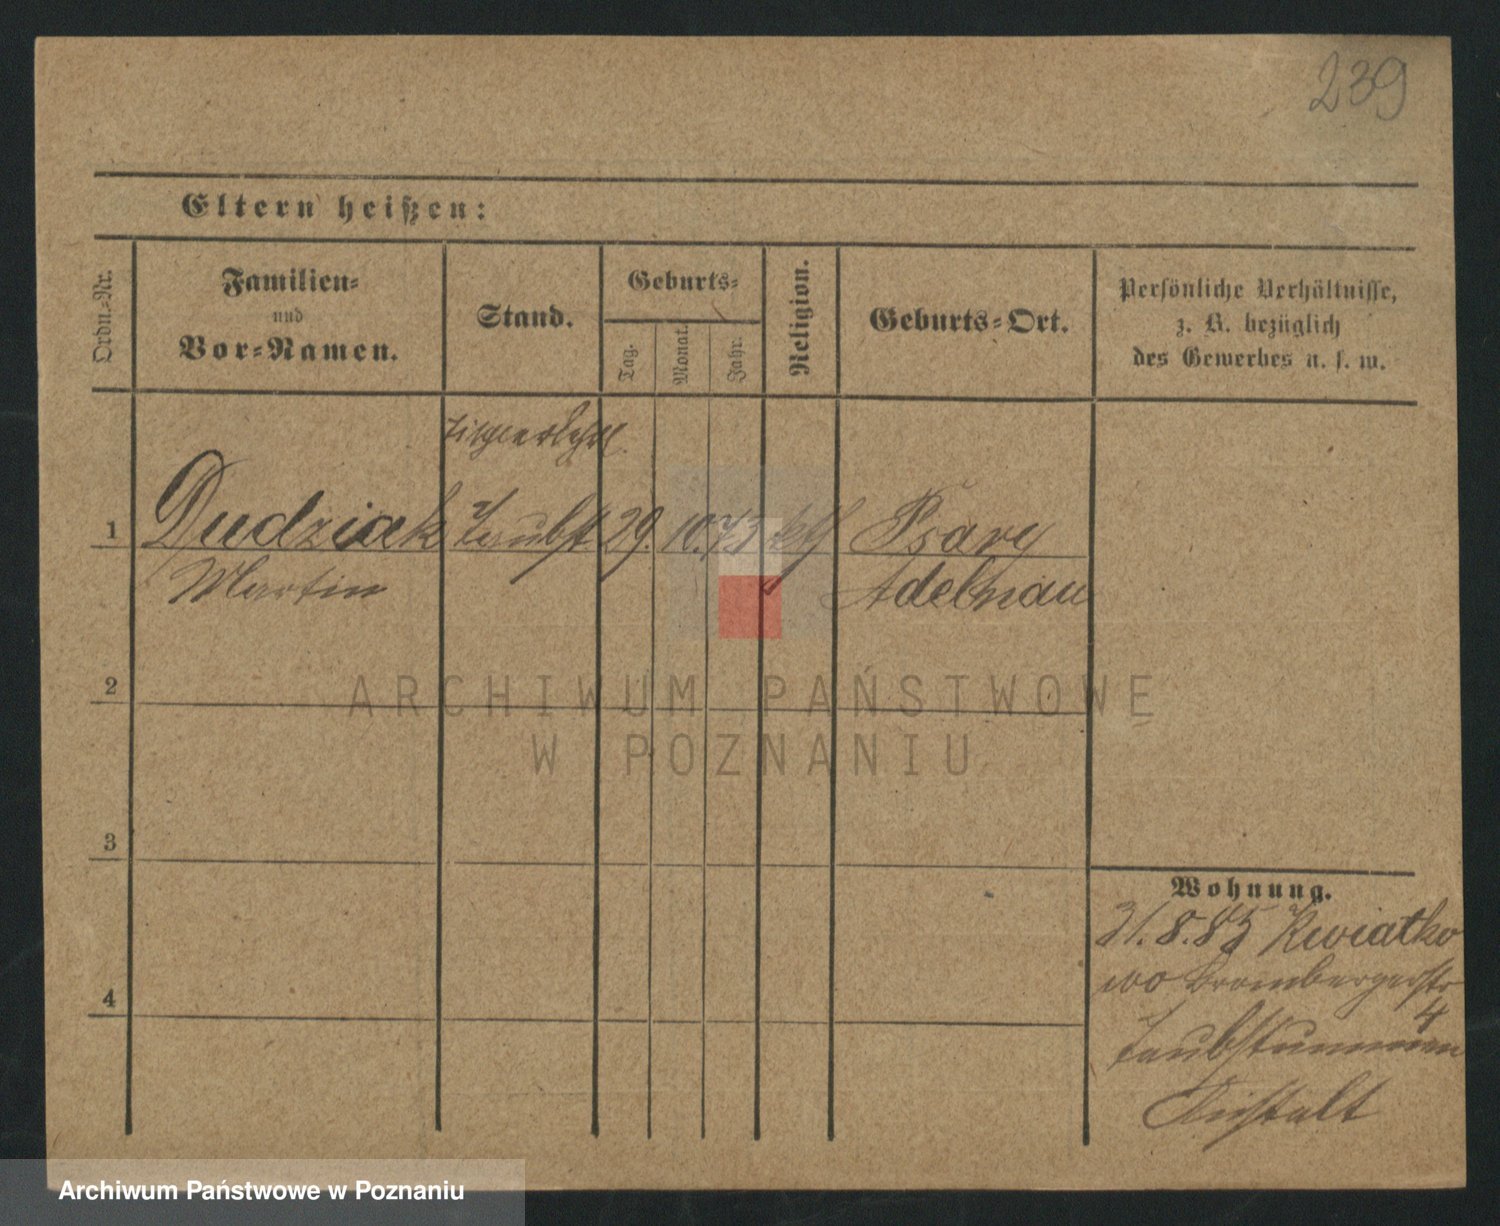 239
Eltern heißen:
Ordn.-Nr.
Familien-
und
Vor-Namen.
Stand.
Geburts-
Tag.
Monat.
Jahr.
Religion.
Geburts-Ort.
Persönliche Verhältnisse,
z. B. bezüglich
des Gewerbes u. s. w.
1
Dudziak
Taubst
29. 10. 73 kth
Psary
Martin
Adelnau
2
ARCHIWUM PAŃSTWOWE
W POZNANIU
3
Wohnung.
31.8.85 Kwiatko
wo Brombergerstr
4
Taubstummen
Anstalt
4
Archiwum Państwowe w Poznaniu